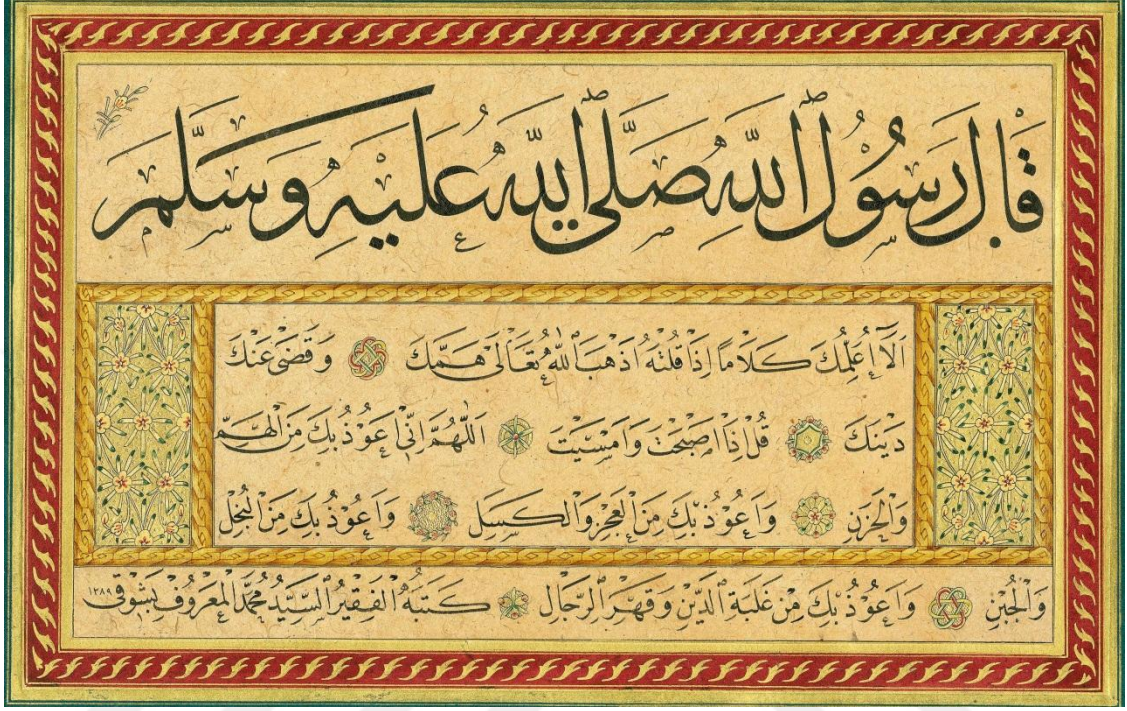 قَالَ رَسُولُ اللّٰهِ صَلَّى اللّٰهُ عَلَيْهِ وَسَلَّمَ
اَلَا اُعَلِّمُكَ كَلَامًا اِذَا قُلْتَهُ اَذْهَبَ اللّٰهُ تَعَالَى هَمَّكَ وَقَضٰى عَنْكَ
دَيْنَكَ قُلْ اِذَا اَصْبَحْتَ وَاَمْسَيْتَ اَللّٰهُمَّ اِنِّى اَعُوذُ بِكَ مِنَ الْهَمِّ
وَالْحَزَنِ وَاَعُوذُ بِكَ مِنَ الْعَجْزِ وَالْكَسَلِ وَاَعُوذُ بِكَ مِنَ الْبُخْلِ
وَالْجُبْنِ وَاَعُوذُ بِكَ مِنْ غَلَبَةِ الدَّيْنِ وَقَهْرِ الرِّجَالِ كَتَبَهُ الْفَقِيرُ السَّيِّدُ مُحَمَّدُ الْمَعْرُوفُ بِشَوْقِى ١٢٨٩